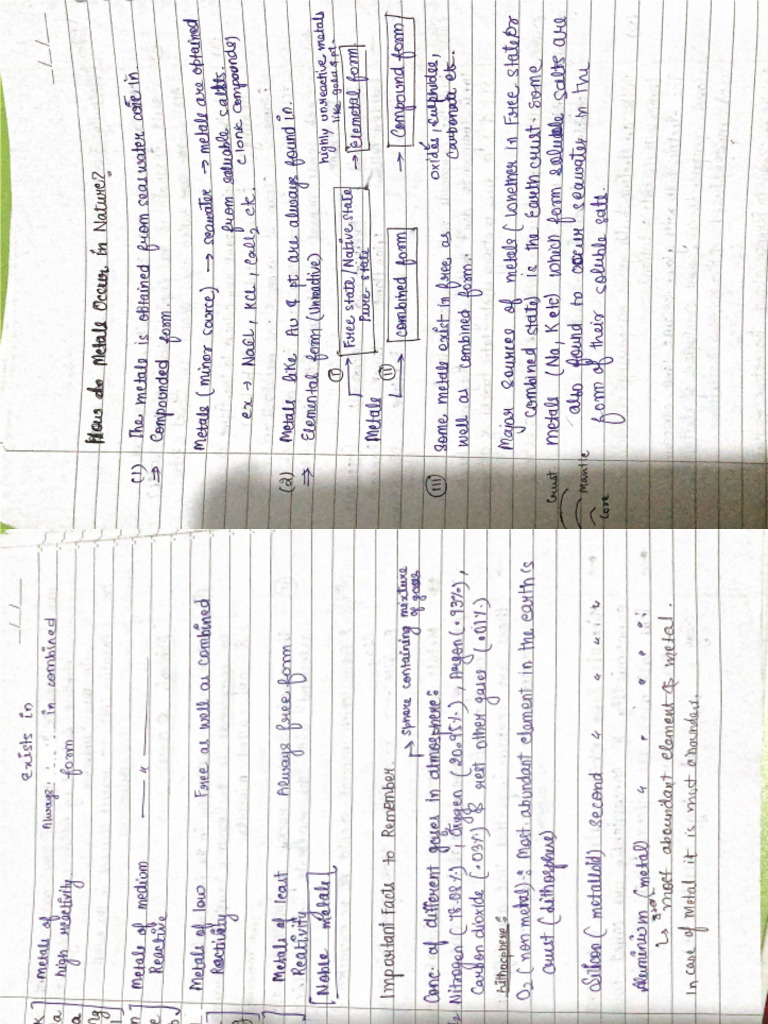 How do Metals Occur in Nature?
(1) The metals is obtained from sea water are in
⇒ Compounded form.
Metals (minor source) → seawater → metals are obtained
from soluable salts.
ex → NaCl, KCl, CaCl2 etc. (Ionic compounds)
(2) Metals like Au & pt are always found in.
⇒ Elemental form (Unreactive)
highly unreactive metals
like gold & pt.
(I) → Free state/Native state → Elemetal form
Pure state
Metals
(II) → combined form → Compound form
oxides, sulphides,
Carbonate etc.
(III) Some metals exist in free as
well as combined form.
Major sources of metals (whether in Free state or
combined state) is the Earth crust. Some
metals (Na, K etc) which form soluble salts are
also found to occur seawater in the
form of their soluble salt.
Crust
Mantle
Core
exists in
Metals of Always in combined
high reactivity form
Metals of medium —— " ——
Reactive
Metals of low Free as well as combined
Reactivity
Metals of least Always free form
Reativity
[Noble metals]
Important Facts to Remember.
→ Sphere containing mixture
of gases
Conc. of different gases in atmosphere:
Nitrogen (78.08%), Oxygen (20.95%), Argon (.93%),
Carbon dioxide (.03%) & rest other gases (.01%)
Lithosphere:
O2 (non metal): most abundant element in the earth's
crust (lithosphere)
Silicon (metalloid) second " " " "
Aluminium (metal) " " " " "
→ most aboundant element & metal.
In case of Metal it is most abundant.